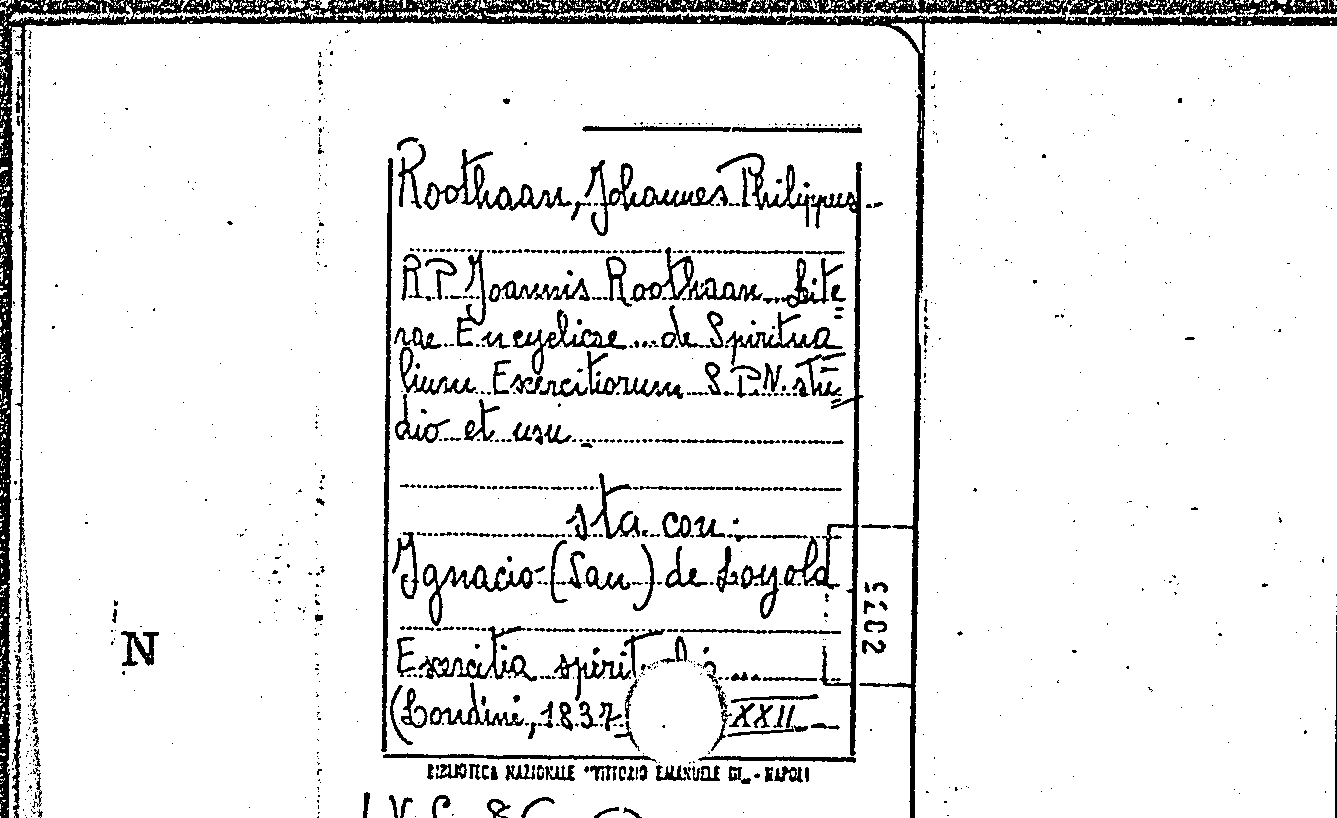 Roothaan, Johannes Philippus.-
R.P. Joannis Roothaan Lite
rae Encyclicae ... de Spiritua
lium Exercitiorum S.P.N. stu
dio et usu.-
sta con:
Ignacio (San) de Loyola
Exercitia
(Londini, 1837
XXII
BIBLIOTECA NAZIONALE "VITTORIO EMANUELE III" - NAPOLI
N